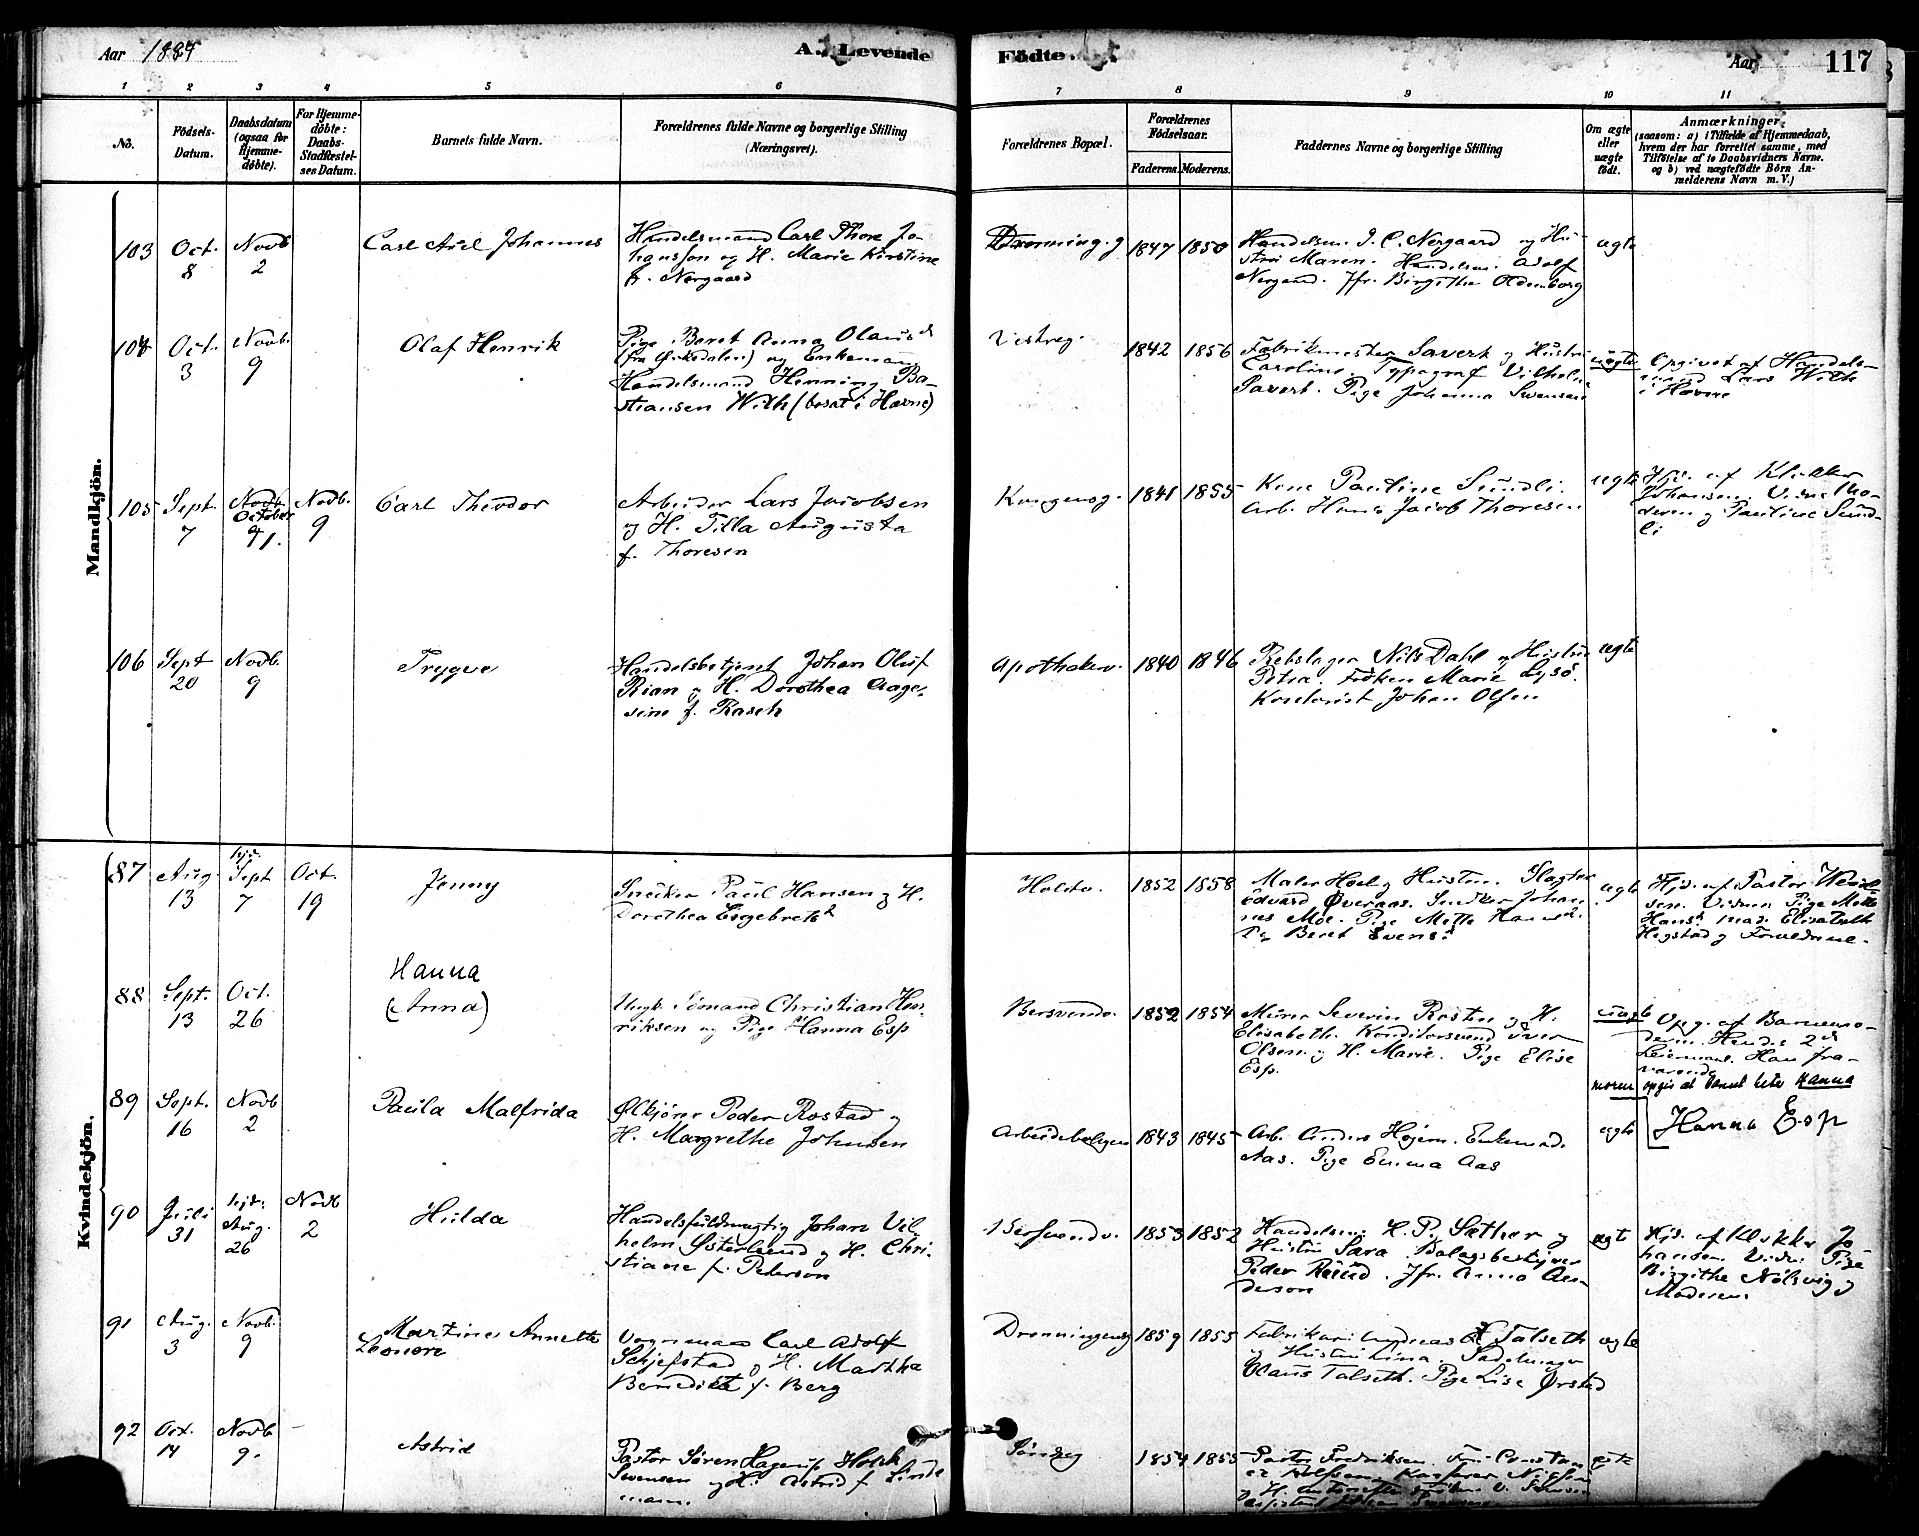 Aar 1884
A. Levende
Födte.
Aar
117
1 2 3 4 5 6 7 8 9 10 11
No.
Födsels-
Datum.
Daabsdatum
(ogsaa for
Hjemme-
döbte).
For Hjemme-
döbte:
Daabs-
Stadfæstel-
ses Datum.
Barnets fulde Navn.
Forældrenes fulde Navne og borgerlige Stilling
(Næringsvei).
Forældrenes Bopæl.
Forældrenes
Födselsaar.
Faderens. Moderens.
Faddernes Navne og borgerlige Stilling
Om ægte
eller
uægte
födt.
Anmærkninger
(saasom: a) i Tilfælde af Hjemmedaab,
hvem der har forrettet samme, med
Tilföielse af to Daabsvidners Navne.
og b) ved uægtefödte Börn An-
melderens Navn m. V.)
Mandkjön.
103
Oct.
8
Novb
2
Carl Axel Johannes
Handelsmand Carl Thore Jo-
hansson og H. Marie Kirstine
f. Nergaard
Dronning.g
1847
1850
Handelsm. J. C. Nergaard og Hu-
stru Maren. Handelsm. Adolf
Nergaard. Jfr. Birgithe Oldenborg
ægte
104
Oct.
3
Novb.
9
Olaf Henrik
Pige Beret Anna Olausd
(fra Ørkedalen) og Enkemand
Handelsmand Henning Ba-
stiansen With (bosat i Havne)
Vestreg.
1842
1856
Fabrikmester Savert og Hustru
Caroline. Typograf Vilhelm
Savert. Pige Johanna Svensen
uægte
Opgivet af Handels-
mand Lars With
i Havne
105
Sept.
7
Novb.
October
9 1.
Novb.
9
Carl Theodor
Arbeider Lars Jacobsen
og H. Tilla Augusta
f. Thoresen
Kongensg.
1841
1855
Kone Pauline Sundli.
Arb. Hans Jacob Thoresen
ægte
Hjd. af Klokker
Johansen. Vidne Mo-
deren og Pauline Sund-
li
106
Sept
20
Novb.
9
Trygve
Handelsbetjent Johan Oluf
Rian og H. Dorothea Aage-
sine f. Rasch
Apothekerv.
1840
1846
Rebslager Nils Dahl og Hustru
Petra. Frøken Marie Lysø.
Kontorist Johan Olsen
ægte
Kvindekjön.
87
Aug
13
hjd.
Sept
7
Oct.
19
Jenny
Snedker Paul Hansen og H.
Dorothea Engebretsd
Holstv.
1852
1858
Maler Hoel og Hustru. Slagter
Edvard Øveraas. Snedker Johan-
nes Moe. Pige Mette Hansd.
Pg Beret Evensd
ægte
Hjd. af Pastor
sen. Vidner Pige Mette
Hansd Mad. Elisabeth
Hegstad og Forældrene.
88
Sept.
13
Oct.
26
Hanna
(Anna)
Ungk. Sømand Christian Hen-
riksen og Pige Hanna Esp
Bersvendv.
1852
1854
Murer Severin Rosten og H.
Elisabeth. Konditorsvend Iver
Olsen og H. Marie. Pige Elise
Esp.
uægte
Opg. af Barnemo-
deren. Hendes 2d
Leiermaal. Han fra-
værende
moren opgir at barnet heter Hanna
Hanna Esp
89
Sept.
16
Novb
2
Paula Malfrida
Ølkjører Peder Rostad og
H. Margrethe Johnsen
Arbeiderboligen
1843
1845
Arb. Anders Hojem. Enkemad.
Aas. Pige Emma Aas
ægte
90
Juli
31
hjd:
Aug.
26
Novb
2
Hulda
Handelsfuldmægtig Johan Vil-
helm Østerlund og H. Chri-
stiane f. Peterson
Bersvendv.
1853
1852
Handelsm. H. P. Sæther og
Hustru Sara. Bolagsbestyrer
Peder Røsud. Jfr. Anna An-
derson
ægt
Hjd. af Klokker Jo
hansen. Vidn: Pige
Birgithe Nølsvig og
Moderen.
91
Aug.
3
Novb.
9
Martine Annette
Leonore
Vognmand Carl Adolf
Schjefstad og H. Martha
Benedikte f. Berg
Dronningensg
1859
1855
Fabrikarb: Andreas Talseth
og Hustru Lina. Sadelmager
Olaus Talseth. Pige Lise Ørsted
ægte
92
Oct.
14
Novb
9.
Astrid
Pastor Sören Hagerup Holck
Svensen og H. Astrid f. Linde
mann.
Söndreg
1854
1855
Pastor Fredriksen.
ægte